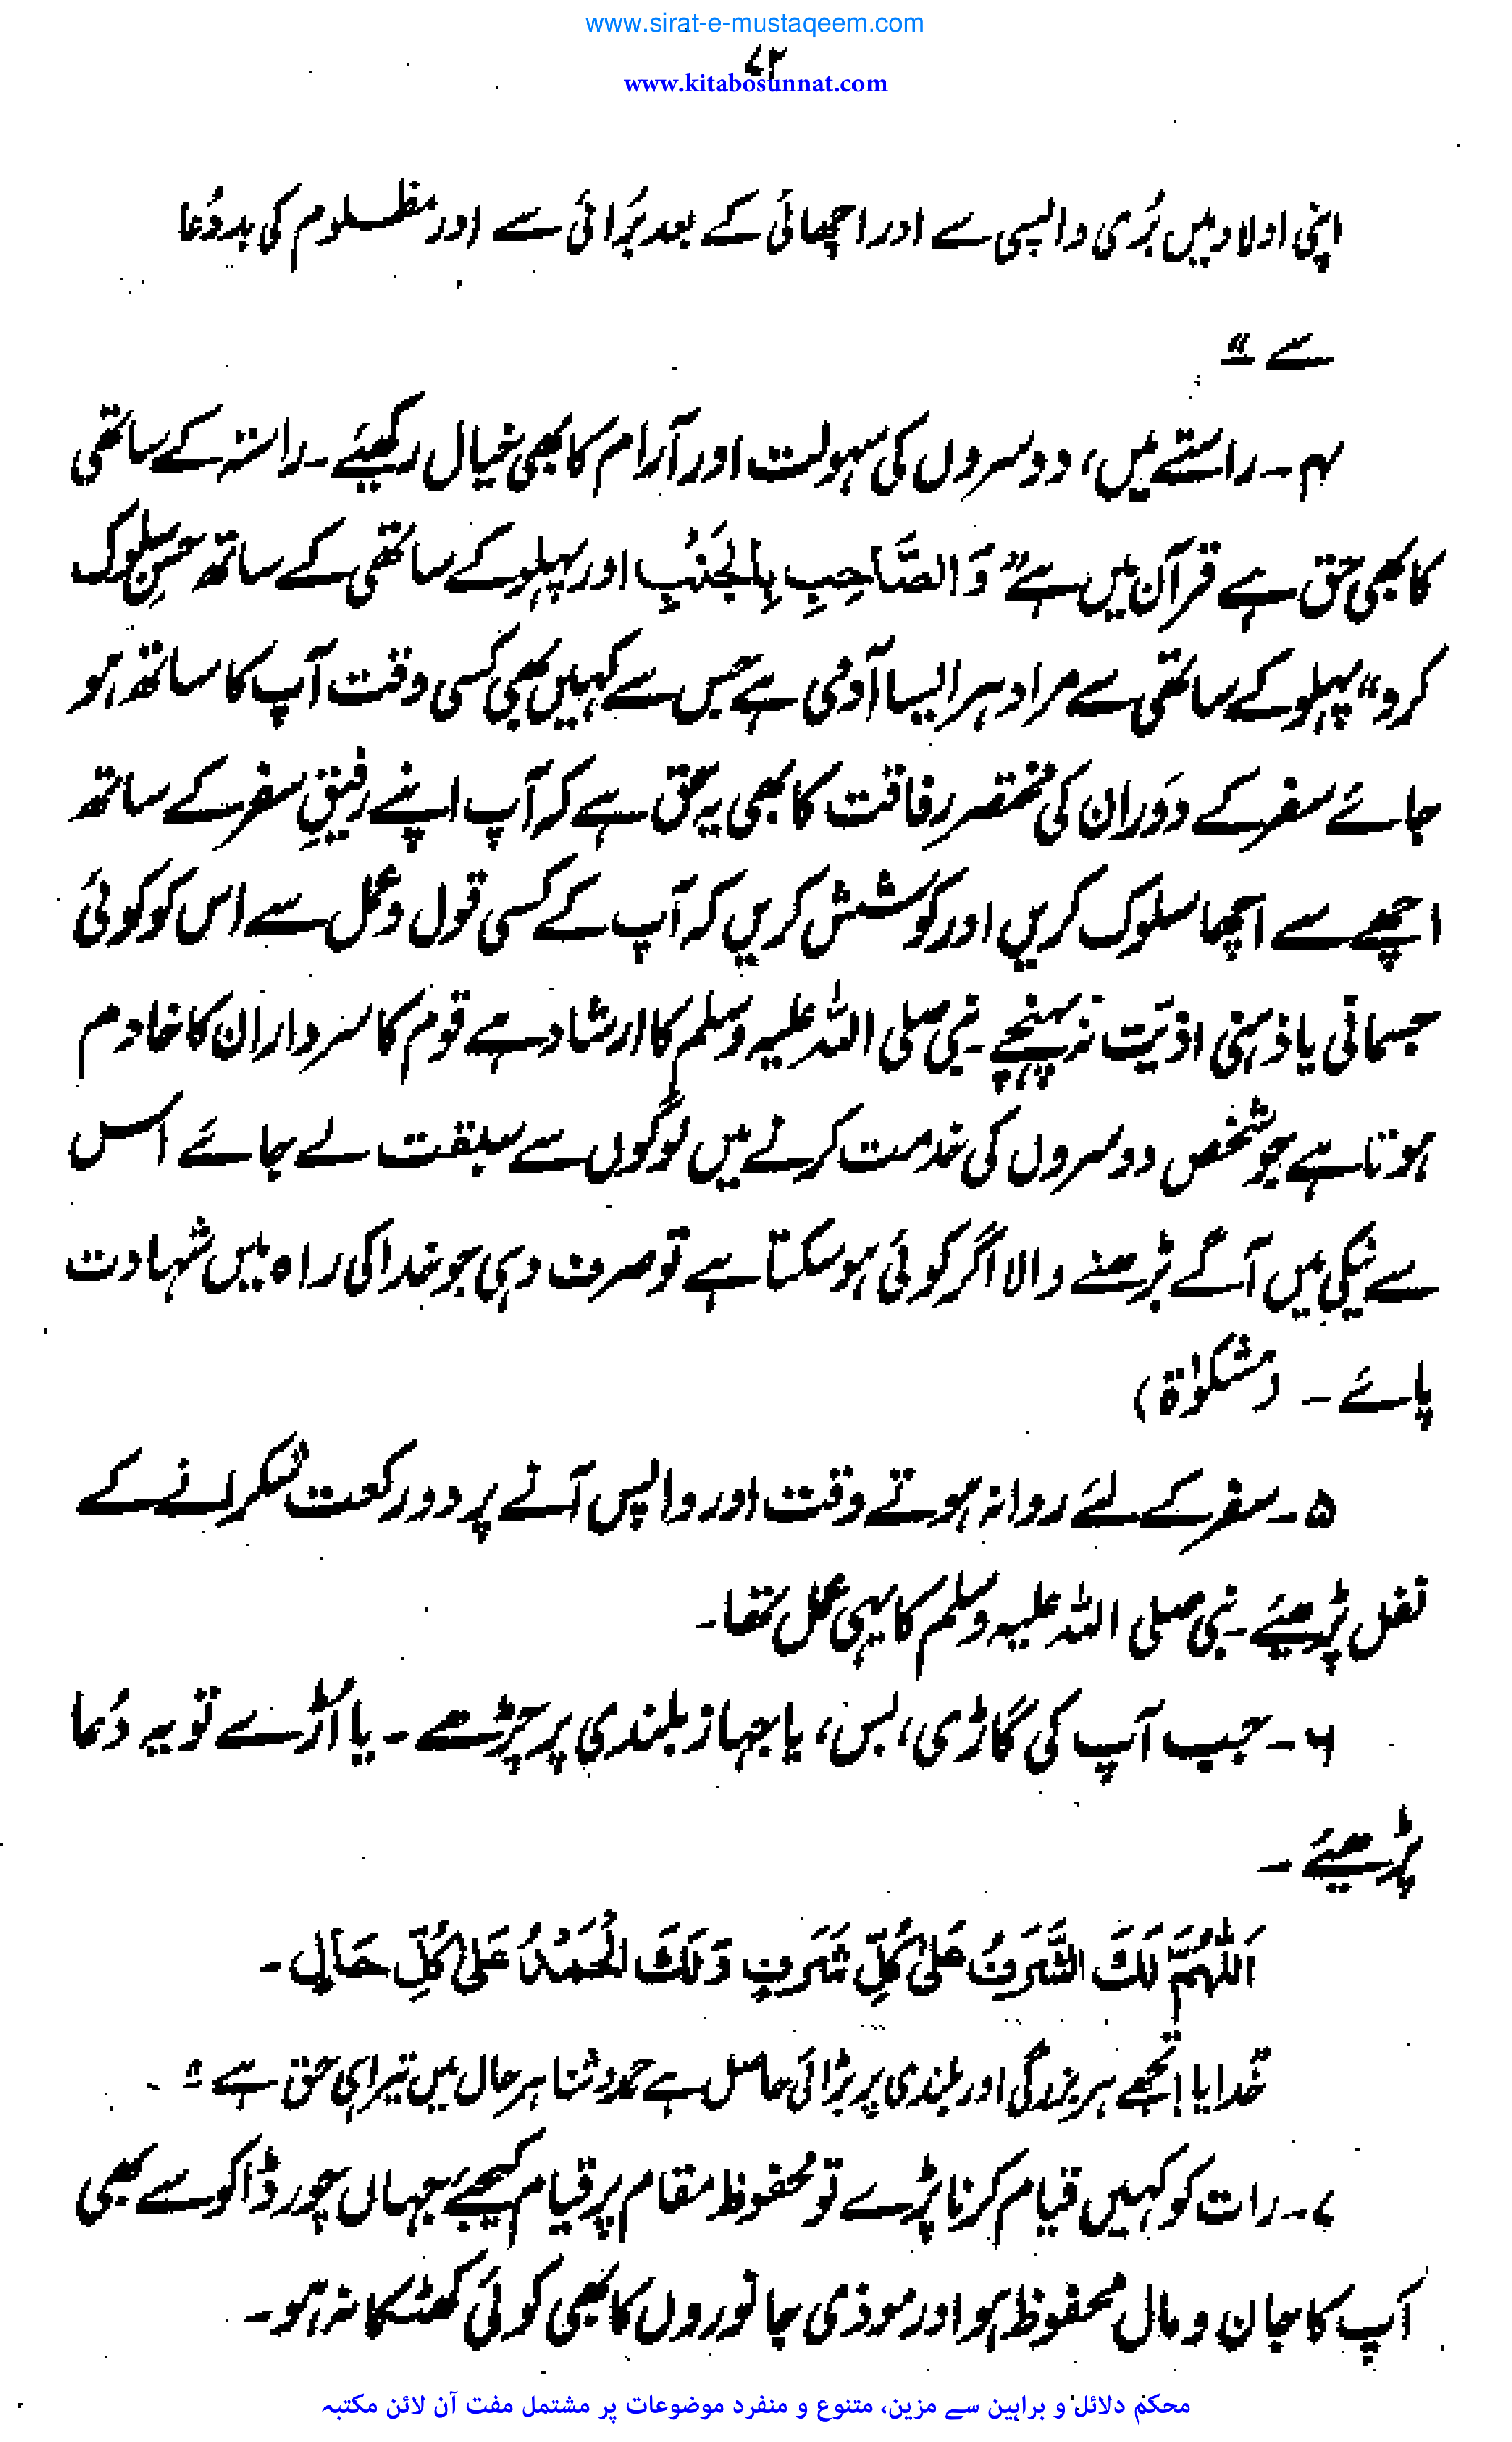 www.sirat-e-mustaqeem.com
۷۲
www.kitabosunnat.com
اپنی اولاد میں بُری واپسی سے اور اچھائی کے بعد بُرائی سے اور مظلوم کی بددُعا
سے ‟
۴۔ راستے میں، دوسروں کی سہولت اور آرام کا بھی خیال رکھیئے ۔ راستہ کے ساتھی
کا بھی حق ہے قرآن میں ہے ” وَالصَّاحِبِ بِالْجَنْبِ اور پہلو کے ساتھی کے ساتھ حُسنِ سلوک
کرو“ پہلو کے ساتھی سے مراد ہر ایسا آدمی ہے جس سے کہیں بھی کسی وقت آپ کا ساتھ ہو
جائے سفر کے دَوران کی مختصر رفاقت کا بھی یہ حق ہے کہ آپ اپنے رفیقِ سفر کے ساتھ
اچھے سے اچھا سلوک کریں اور کوشش کریں کہ آپ کے کسی قول و عمل سے اس کو کوئی
جسمانی یا ذہنی اذیّت نہ پہنچے ۔ نبی صلی اللہ علیہ وسلم کا ارشاد ہے قوم کا سردار ان کا خادم
ہوتا ہے جو شخص دوسروں کی خدمت کرنے میں لوگوں سے سبقت لے جائے اس
سے نیکی میں آگے بڑھنے والا اگر کوئی ہو سکتا ہے تو صرف وہی جو خدا کی راہ میں شہادت
پائے ۔ (مشکوٰۃ)
۵۔ سفر کے لئے روانہ ہوتے وقت اور واپس آنے پر دو رکعت شکرانے کے
نفل پڑھیئے ۔ نبی صلی اللہ علیہ وسلم کا یہی عمل تھا۔
۶۔ جب آپ کی گاڑی، بس، یا جہاز بلندی پر چڑھے ۔ یا اُڑے تو یہ دُعا
پڑھیئے ۔
اَللّٰهُمَّ لَكَ الشَّرَفُ عَلىٰ كُلِّ شَرَفٍ وَلَكَ الْحَمْدُ عَلىٰ كُلِّ حَالٍ ۔
خُدایا! تجھے ہر بزرگی اور بلندی پر بڑائی حاصل ہے حمد و ثنا ہر حال میں تیرا ہی حق ہے ‟ ۔
۷۔ رات کو کہیں قیام کرنا پڑے تو محفوظ مقام پر قیام کیجیئے جہاں چور ڈاکو سے بھی
آپ کا جان و مال محفوظ ہو اور موذی جانوروں کا بھی کوئی کھٹکا نہ ہو۔
محکم دلائل و براہین سے مزین، متنوع و منفرد موضوعات پر مشتمل مفت آن لائن مکتبہ